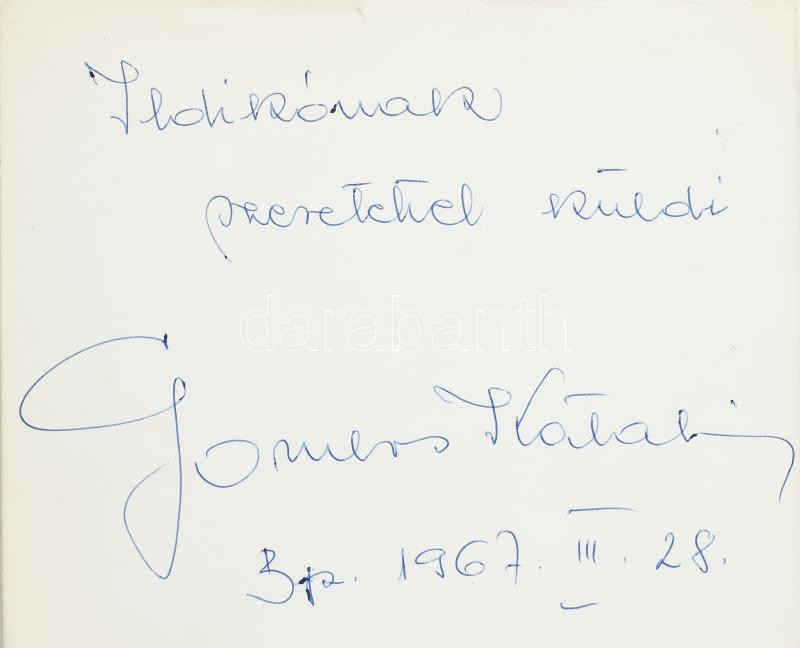 Ildikónak
szeretettel küldi
darabanth
Gombos Katalin
Bp. 1967. III. 28.